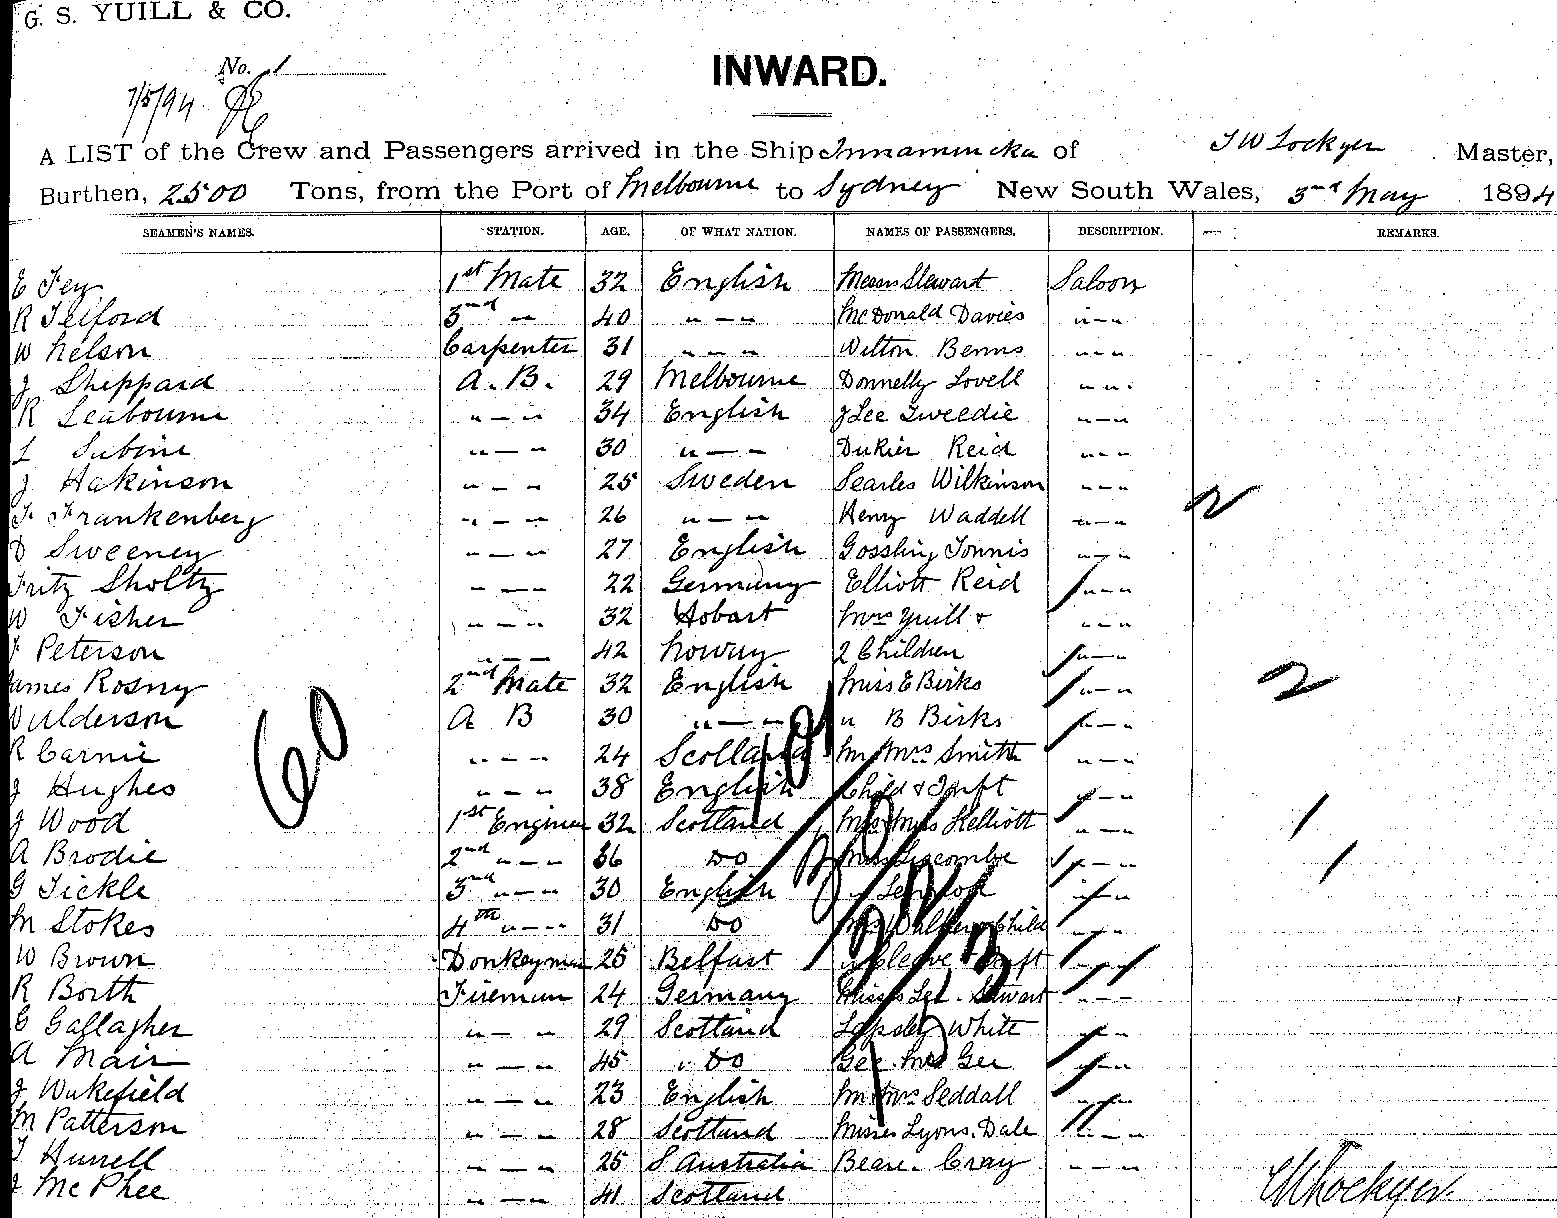 G. S. YUILL & CO.
No. 1
7/5/94
INWARD.
A LIST of the Crew and Passengers arrived in the Ship Innamincka of T W Lockyer Master,
Burthen, 2500 Tons, from the Port of Melbourne to Sydney New South Wales, 3rd May 1894
SEAMEN'S NAMES. STATION. AGE. OF WHAT NATION. NAMES OF PASSENGERS. DESCRIPTION. REMARKS.
E Fey 1st Mate 32 English Messrs Stewart Saloon
R Telford 3rd " 40 " — " McDonald Davies " — "
W Nelson Carpenter 31 " — " Wilton Benns " — "
J Sheppard A. B. 29 Melbourne Donnelly Lovell " — "
R Seabourne " — " 34 English J Lee Tweedie " — "
L Subine " — " 30 " — " DuRier Reid " — "
J Hakinson " — " 25 Sweden Searles Wilkinson " — "
F Frankenberg " — " 26 " — " Henry Waddell " — " 2
D Sweeney " — " 27 English Gossling Tonnis " — "
Fritz Sholtz " — " 22 Germany Elliott Reid " — "
W Fisher " — " 32 Hobart Mrs Yuill & " — "
F Peterson " — " 42 Norway 2 Children " — "
James Rosny 2nd Mate 32 English Miss E Birks " — " 2
W Alderson A B 30 " — " " B Birks " — "
R Carnie " — " 24 Scotland Mr Mrs Smith " — "
J Hughes " — " 38 English Child & Inft " — "
60
101
J Wood 1st Engineer 32 Scotland Mrs Miss Helliott " — " 1
A Brodie 2nd " — " 36 Do Miss Liscombe " — " 1
G Tickle 3rd " — " 30 English " " — "
M Stokes 4th " — " 31 Do Mrs Walker & Child " — "
W Brown Donkeyman 25 Belfast " Cleave & Inft " — "
R Borth Fireman 24 Germany Misses Stewart " — "
E Gallagher " — " 29 Scotland Lapsley White " — "
A Mair " — " 45 " Do Gee Mrs Gee " — "
J Wakefield " — " 23 English Mr Mrs Seddall " — "
M Patterson " — " 28 Scotland Misses Lyons. Dale " — "
T Hurrell " — " 25 S Australia Beare. Cray " — "
J McPhee " — " 41 Scotland
Lockyer